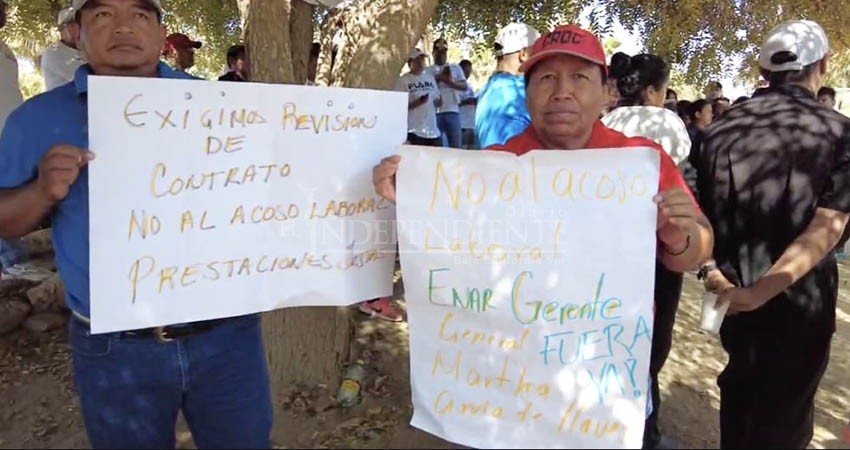 EXIGIMOS REVISION
DE
CONTRATO
NO AL ACOSO LABORAL
PRESTACIONES JUSTAS
No al acoso
Laboral
ENAR Gerente
General FUERA
Martha YA!
CROC
Diario
EL INDEPENDIENTE